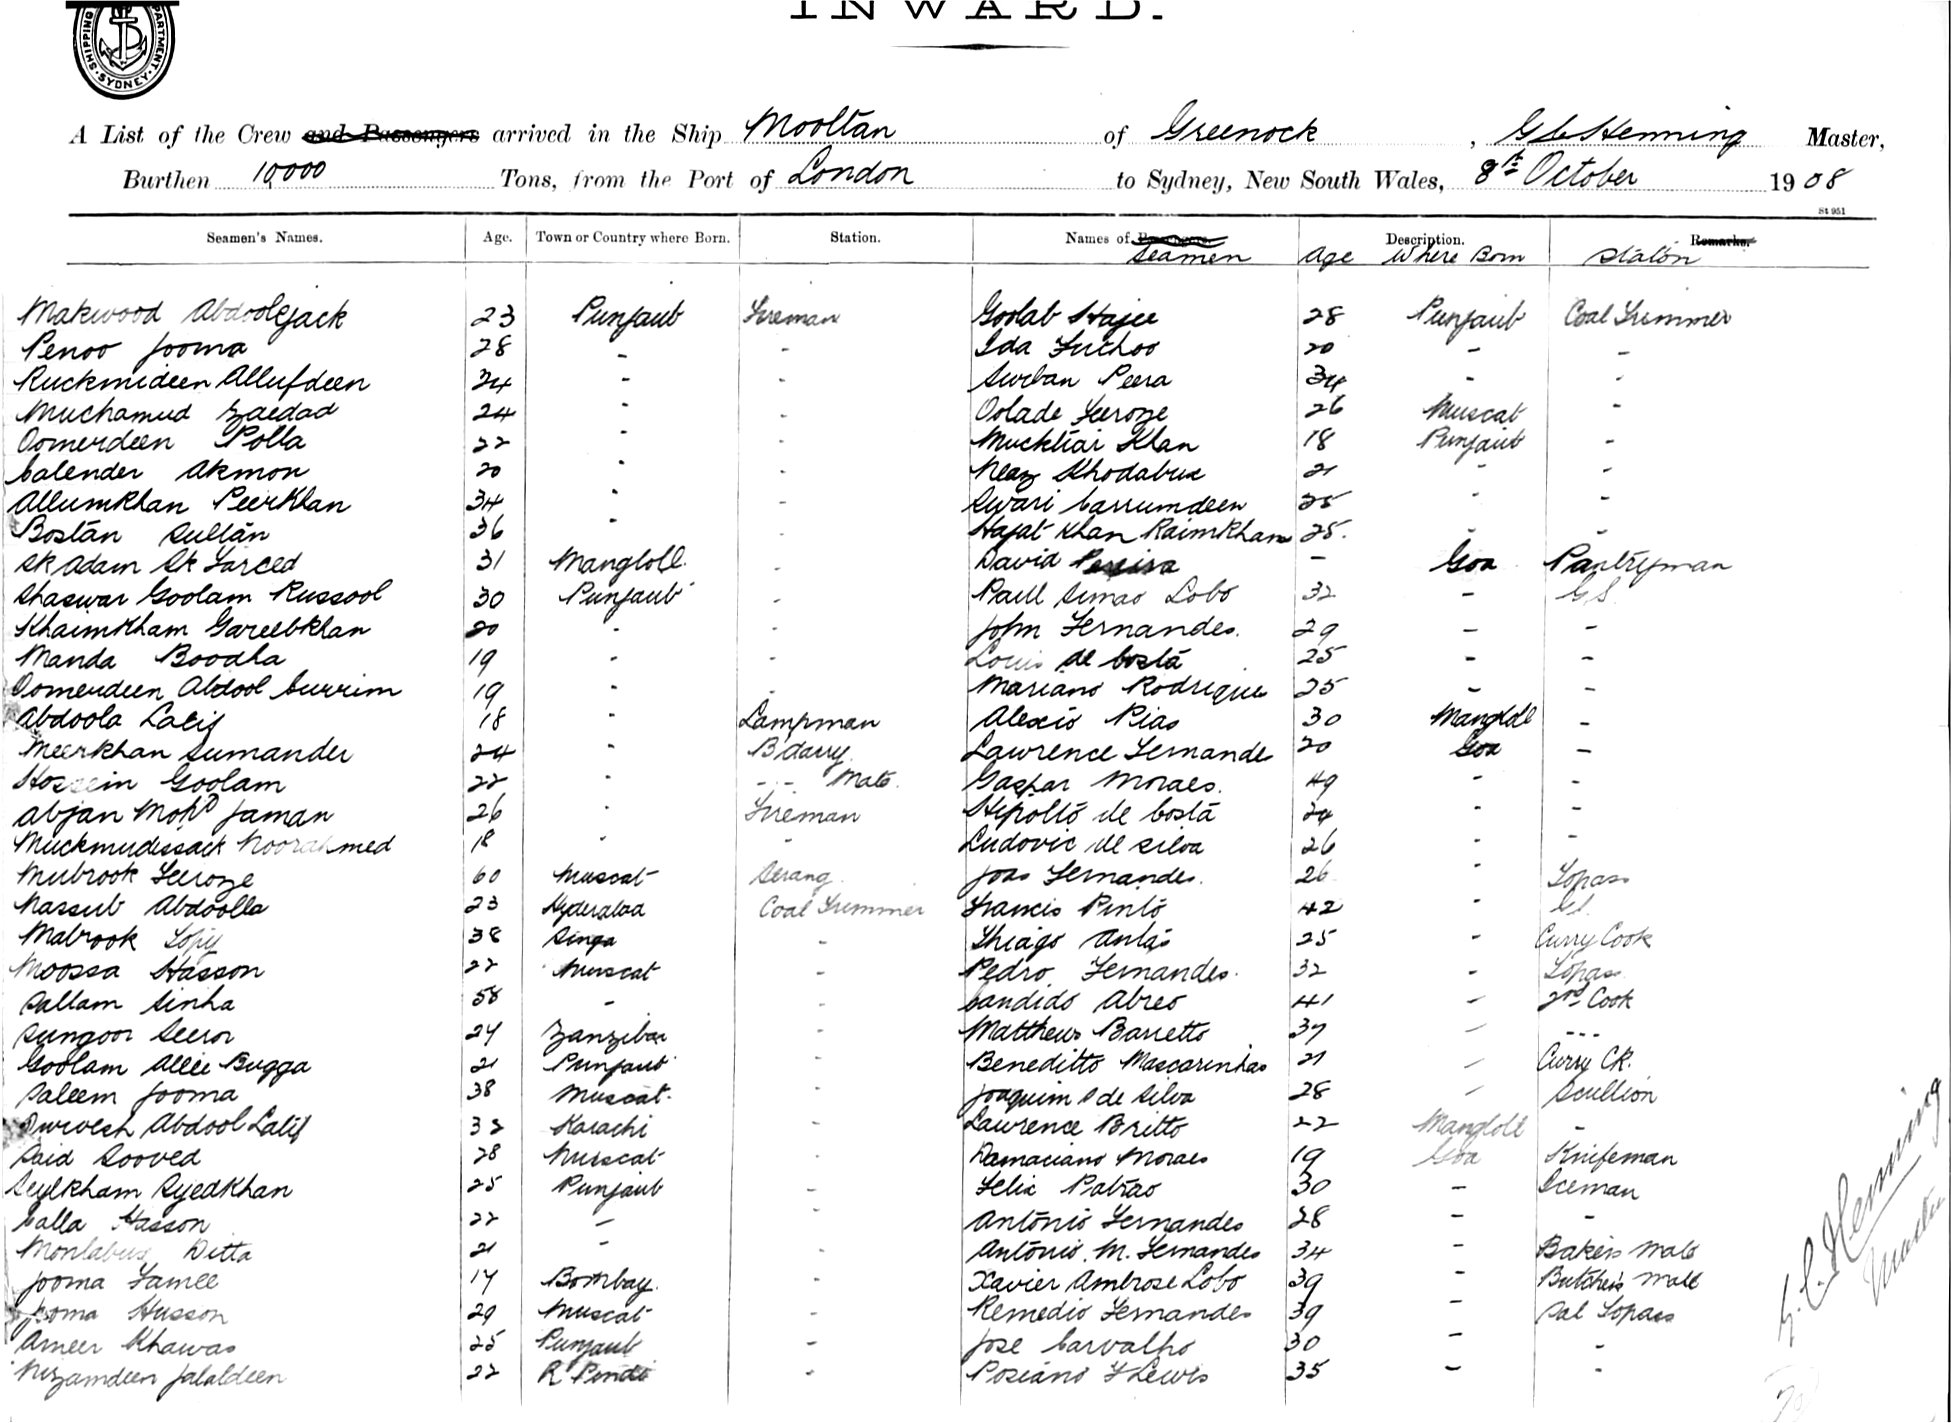 INWARD.
SHIPPING DEPARTMENT SYDNEY
A List of the Crew and Passengers arrived in the Ship Mooltan of Greenock, G C Henning Master,
Burthen 10,000 Tons, from the Port of London to Sydney, New South Wales, 8th October 1908
St 951
Seamen's Names. Age. Town or Country where Born. Station. Names of Passengers. Description. Remarks.
Seamen Age Where Born Station
Makwood Abdoolejack 23 Punjaub Fireman Goolab Hajee 28 Punjaub Coal Trimmer
Penoo Jooma 28 - - Ida Fuchoo 20 - -
Ruckmideen Allufdeen 34 - - Surban Peera 34 - -
Muchamud Zaedad 24 - - Oolade Feeroze 26 Muscat -
Oomerdeen Polla 22 - - Mucktiar Khan 18 Punjaub -
Calender Akmon 20 - - Neaz Khodabux 21 - -
Allumkhan Peerkhan 34 - - Swari Carrumdeen 25 - -
Bostan Sultan 36 - - Hajat Khan Raimkham 25. - -
Sk Adam Sk Fareed 31 Mangloll - David Pereira - Goa Pantryman
Shaswar Goolam Russool 30 Punjaub - Paul Simao Lobo 32 - G.S.
Khaimkham Gareebkhan 20 - - John Fernandes. 29 - -
Manda Boodha 19 - - Louis de Costa 25 - -
Oomerdeen Abdool Currim 19 - - Mariano Rodrigues 25 - -
Abdoola Latif 18 - Lampman Alexio Pias 30 Mangloll -
Meerkhan Sumander 24 - Bdarry Lawrence Fernande 20 Goa -
Hossein Goolam 22 - - - Mate. Gaspar Moraes. 49 - -
Abjan Mohd Jaman 26 - Fireman Hipolto de Costa 24 - -
Muckmudissack Noorahmed 18 - - Ludovic de Silva 26 - -
Mubrook Feeroze 60 Muscat Serang. Joao Fernandes. 26 - Topass
Nassub Abdoolla 23 Hyderabad Coal Trimmer Francis Pinto 42 - G.S.
Mabrook Topy 38 - Thiago Antao 25 - Curry Cook
Moossa Hasson 22 Muscat - Pedro Fernandes. 32 - Topass
Sallam Sinha 58 - - Candido Abreo 41 - 2nd Cook
Sungoor Seeror 24 Zanzibar - Mattheus Barretto 37 - - - -
Goolam Allee Bugga 21 Punjaub - Beneditto Mascarinhas 21 - Curry CK.
Saleem Jooma 38 Muscat. - Joaquim S de Silva 28 - Scullion
Durvesh Abdool Latif 32 Karachi - Lawrence Britto 22 Mangloll -
Said Sooved 28 Muscat - Damaciano Moraes 19 Goa Knifeman
Seylkham Syedkhan 25 Punjaub - Felix Patrao 30 - Iceman
Calla Hasson 22 - - Antonio Fernandes 28 - -
Monlabux Ditta 21 - - Antonio. M. Fernandes 34 - Bakers Mate
Jooma Famee 17 Bombay. - Xavier Ambrose Lobo 39 - Butchers Mate
Jooma Husson 29 Muscat - Remedio Fernandes 39 - Sal Topass
Ameer Khawas 25 Punjaub - Jose Carvalho 30 - -
Nizamdeen Jalaldeen 22 R Pindi - Posiano F Lewis 35 - -
G. C. Henning
Master